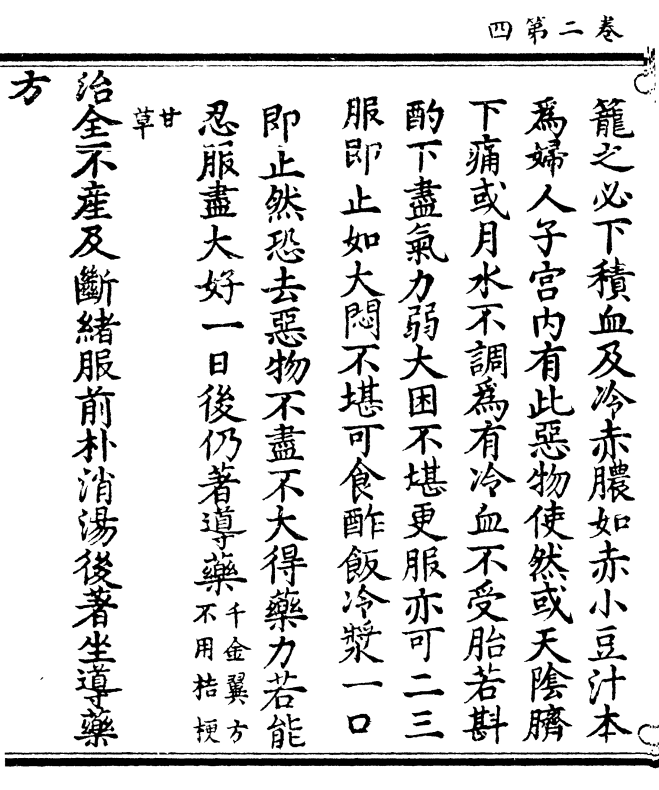 卷二第四
籠之必下積血及冷赤膿如赤小豆汁本
爲婦人子宫内有此惡物使然或天陰臍
下痛或月水不調爲有冷血不受胎若斟
酌下盡氣力弱大困不堪更服亦可二三
服即止如大悶不堪可食酢飯冷漿一口
即止然恐去惡物不盡不大得藥力若能
忍服盡大好一日後仍著導藥千金翼方
不用桔梗
甘
草
治全不産及斷緒服前朴消湯後著坐導藥
方